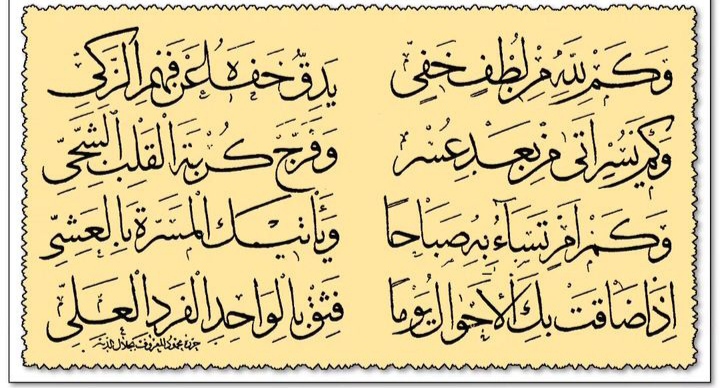 وَكَمْ لِلَّهِ مِنْ لُطْفٍ خَفِيٍّ يَدِقُّ خَفَاهُ عَنْ فَهْمِ الزَّكِيِّ
وَكَمْ يُسْرٍ أَتَى مِنْ بَعْدِ عُسْرٍ وَفَرَّجَ كُرْبَةَ الْقَلْبِ الشَّجِيِّ
وَكَمْ أَمْرٍ تُسَاءُ بِهِ صَبَاحًا وَتَأْتِيكَ الْمَسَرَّةُ بِالْعَشِيِّ
إِذَا ضَاقَتْ بِكَ الْأَحْوَالُ يَوْمًا فَثِقْ بِالْوَاحِدِ الْفَرْدِ الْعَلِيِّ